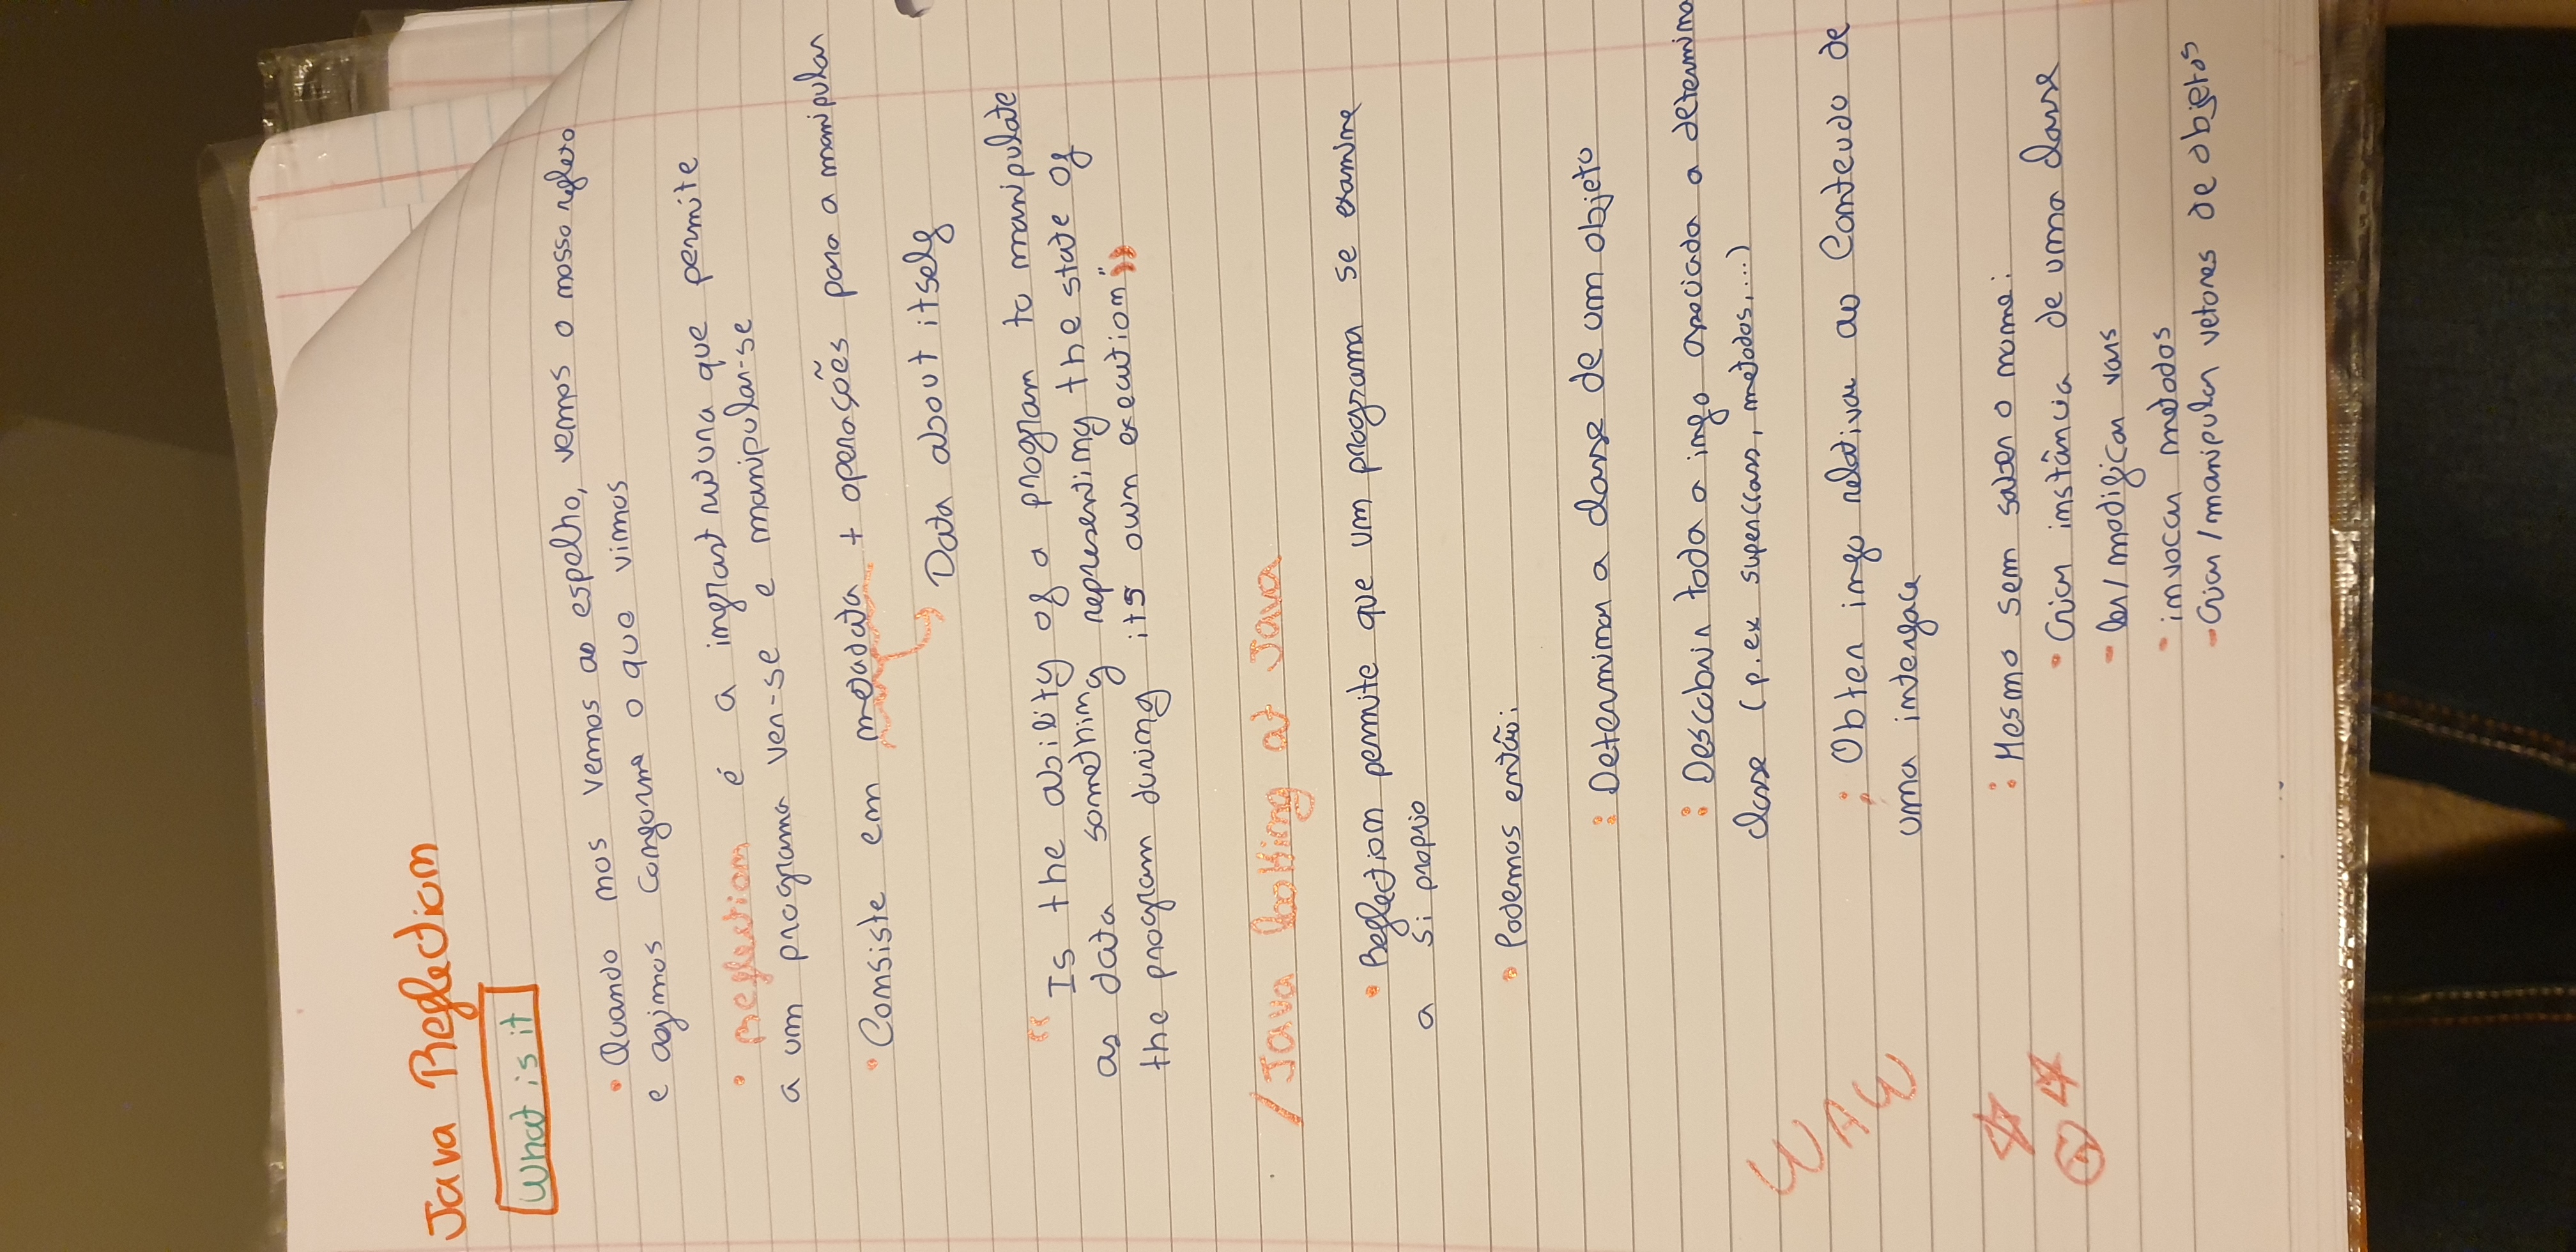 Java Reflection
What is it
• Quando nos vemos ao espelho, vemos o nosso reflexo
e agimos conforme o que vimos
• Reflection é a infrastrutura que permite
a um programa ver-se e manipular-se
• Consiste em metadata + operações para a manipular
Data about itself
“ Is the ability of a program to manipulate
as data something representing the state of
the program during its own execution”
/Java looking at Java
• Reflection permite que um programa se examine
a si proprio
• Podemos então:
: Determinar a classe de um objeto
: Descobrir toda a info associada a determina
classe (p.ex superclass, metodos,...)
: Obter info relativa ao Conteudo de
uma interface
WAW
: Mesmo sem saber o nome:
• Criar instância de uma classe
- ler/modificar vars
• invocar metodos
- Criar/manipular vetores de objetos